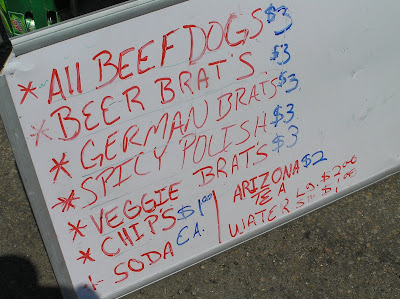 * All BEEF DOGS $3
* BEER BRAT'S $3
* GERMAN BRATS $3
* SPICY POLISH $3
* VEGGIE BRATS $3
* CHIP'S $1.00
+ SODA EA.
ARIZONA $2
TEA
WATER LG. $2.00
SM. $1.00